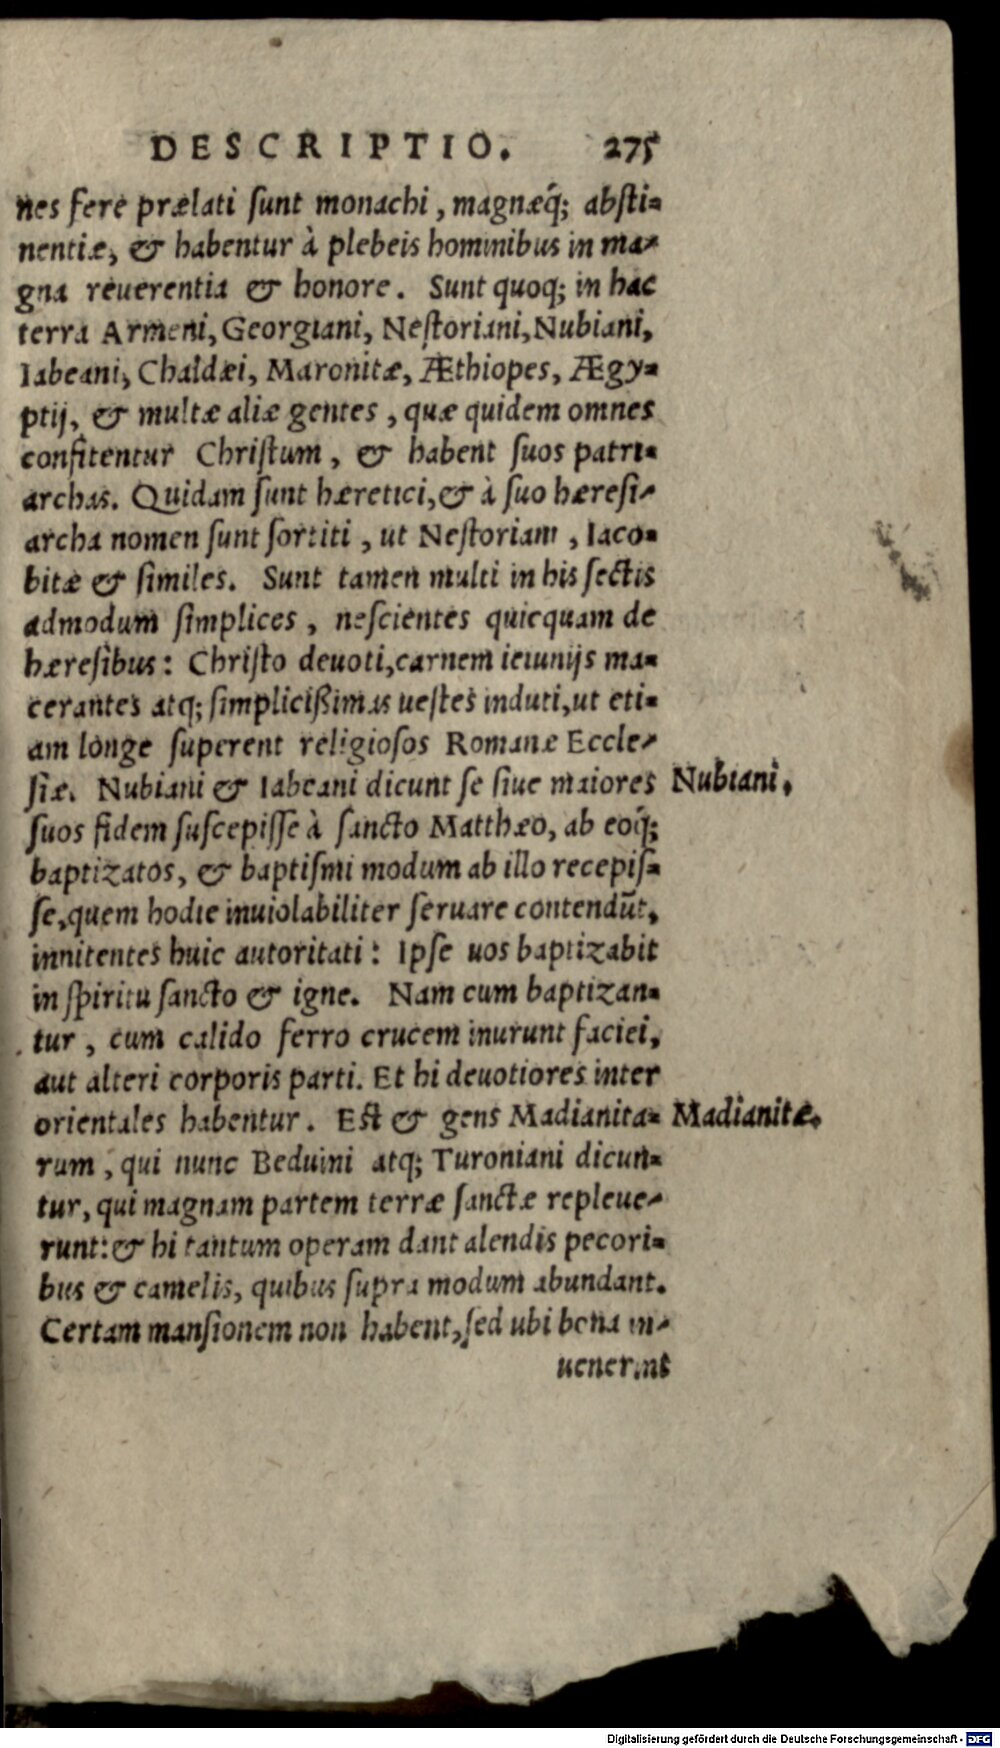 DESCRIPTIO. 275
nes fere prælati ſunt monachi, magnæq́; abſti-
nentiæ, & habentur à plebeis hominibus in ma-
gna reuerentia & honore. Sunt quoq; in hac
terra Armeni, Georgiani, Neſtoriani, Nubiani,
Iabeani, Chaldæi, Maronitæ, Æthiopes, Ægy-
ptij, & multæ aliæ gentes, quæ quidem omnes
confitentur Chriſtum, & habent ſuos patri-
archas. Quidam ſunt hæretici, & à ſuo hæreſi-
archa nomen ſunt ſortiti, ut Neſtoriani, Iaco-
bitæ & ſimiles. Sunt tamen multi in his ſectis
admodum ſimplices, neſcientes quicquam de
hæreſibus: Chriſto deuoti, carnem ieiunijs ma-
cerantes atq; ſimplicißimas ueſtes induti, ut eti-
am longe ſuperent religioſos Romanæ Eccle-
ſiæ. Nubiani & Iabeani dicunt ſe ſiue maiores
Nubiani.
ſuos fidem ſuſcepiſſe à ſancto Matthæo, ab eoq́;
baptizatos, & baptiſmi modum ab illo recepiſ-
ſe, quem hodie inuiolabiliter ſeruare contendūt,
innitentes huic autoritati: Ipſe uos baptizabit
in ſpiritu ſancto & igne. Nam cum baptizan-
tur, cum calido ferro crucem inurunt faciei,
aut alteri corporis parti. Et hi deuotiores inter
orientales habentur. Eſt & gens Madianita-
Madianitæ.
rum, qui nunc Beduini atq; Turoniani dicun-
tur, qui magnam partem terræ ſanctæ repleue-
runt: & hi tantum operam dant alendis pecori-
bus & camelis, quibus ſupra modum abundant.
Certam manſionem non habent, ſed ubi bona in-
uenerint
Digitalisierung gefördert durch die Deutsche Forschungsgemeinschaft - DFG